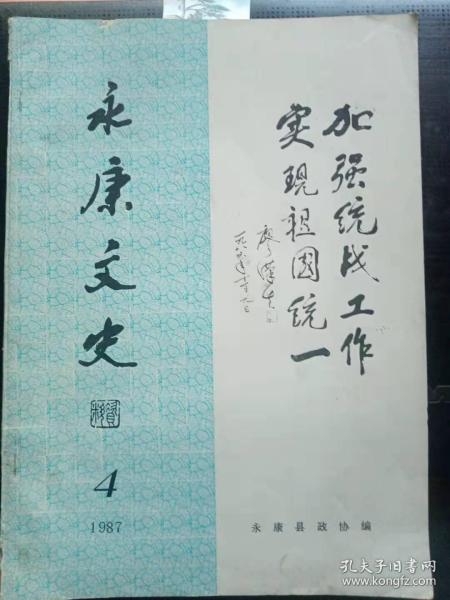 永康文史
资料
4
1987
加强统战工作
实现祖国统一
廖汉生
永康县政协编
孔夫子旧书网
www.kongfz.com